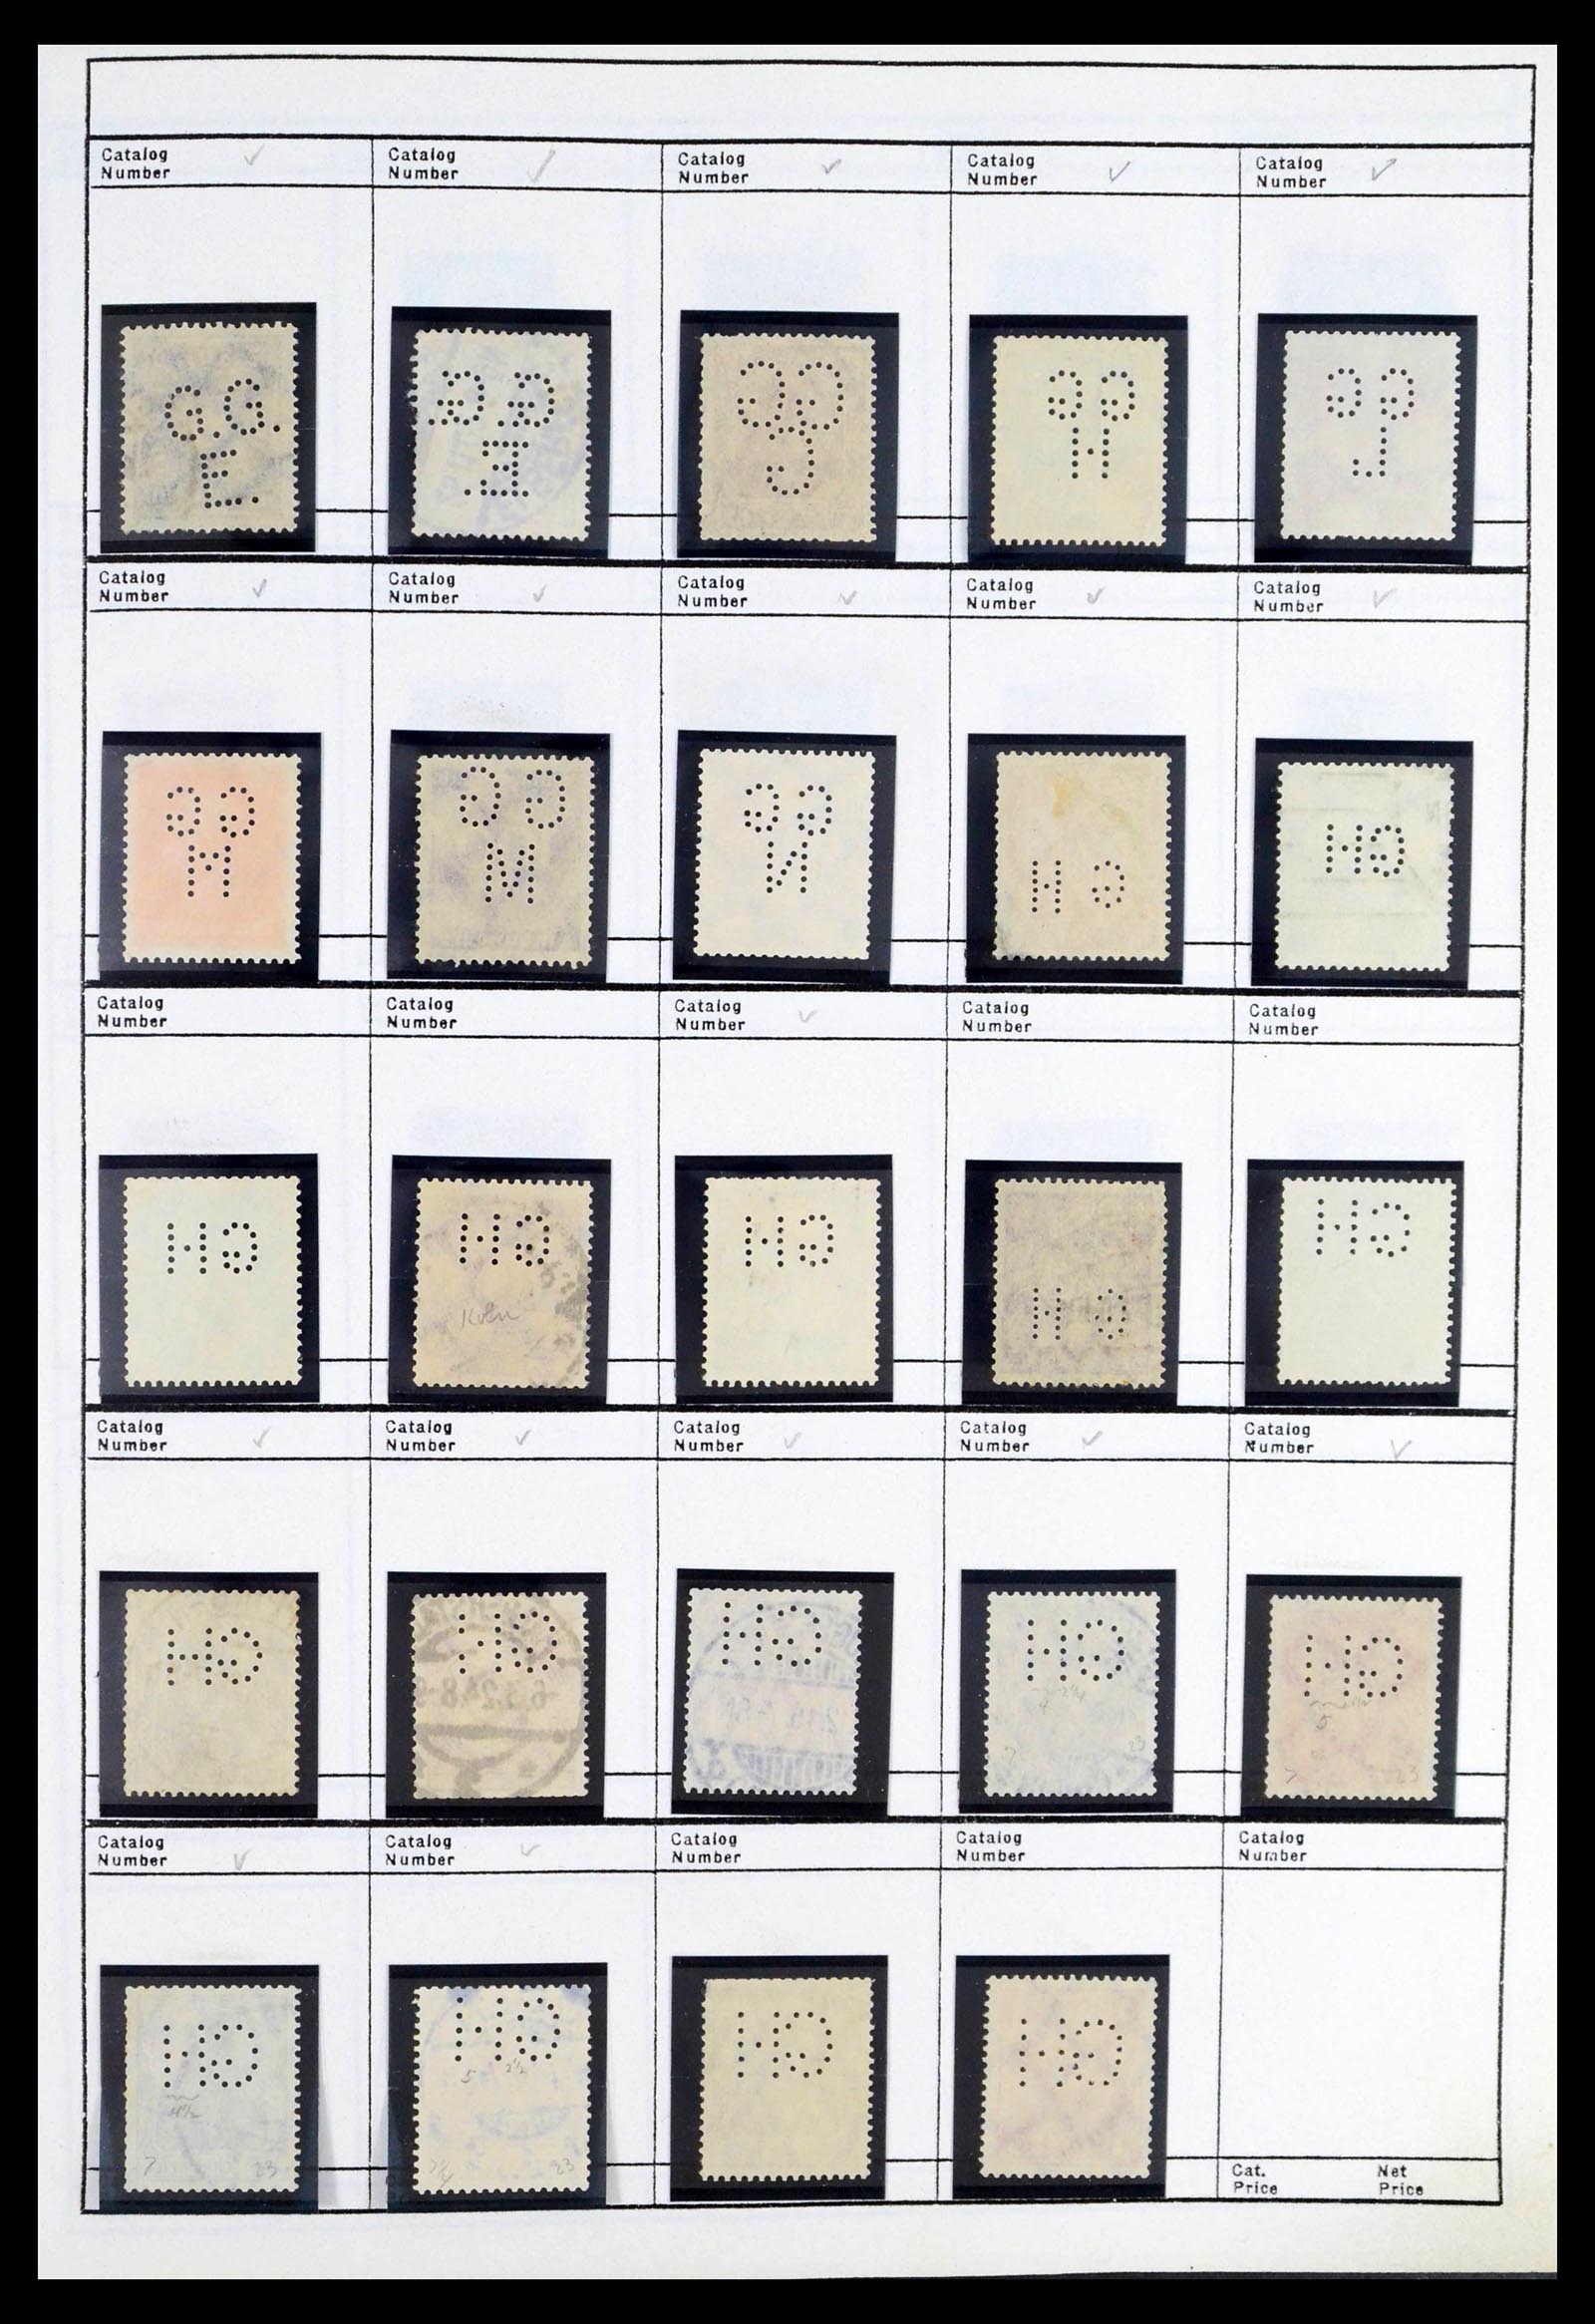 Catalog Number ✓ Catalog Number ✓ Catalog Number ✓ Catalog Number ✓ Catalog Number ✓
G.G.
E.
G.G.
E.
GG
J
GG
H
GG
J
Catalog Number ✓ Catalog Number ✓ Catalog Number ✓ Catalog Number ✓ Catalog Number ✓
GG
M
GG
M
GG
N
GH
GH
Catalog Number Catalog Number Catalog Number ✓ Catalog Number Catalog Number
GH
GH
Köln
GH
GH
GH
Catalog Number ✓ Catalog Number ✓ Catalog Number ✓ Catalog Number ✓ Catalog Number ✓
GH
GH
GH
GH
4 2¼
7 23
GH
5
7 23
Catalog Number ✓ Catalog Number ✓ Catalog Number Catalog Number Catalog Number
GH
4½
7 23
GH
5 2½
23
GH
GH
Cat. Price Net Price